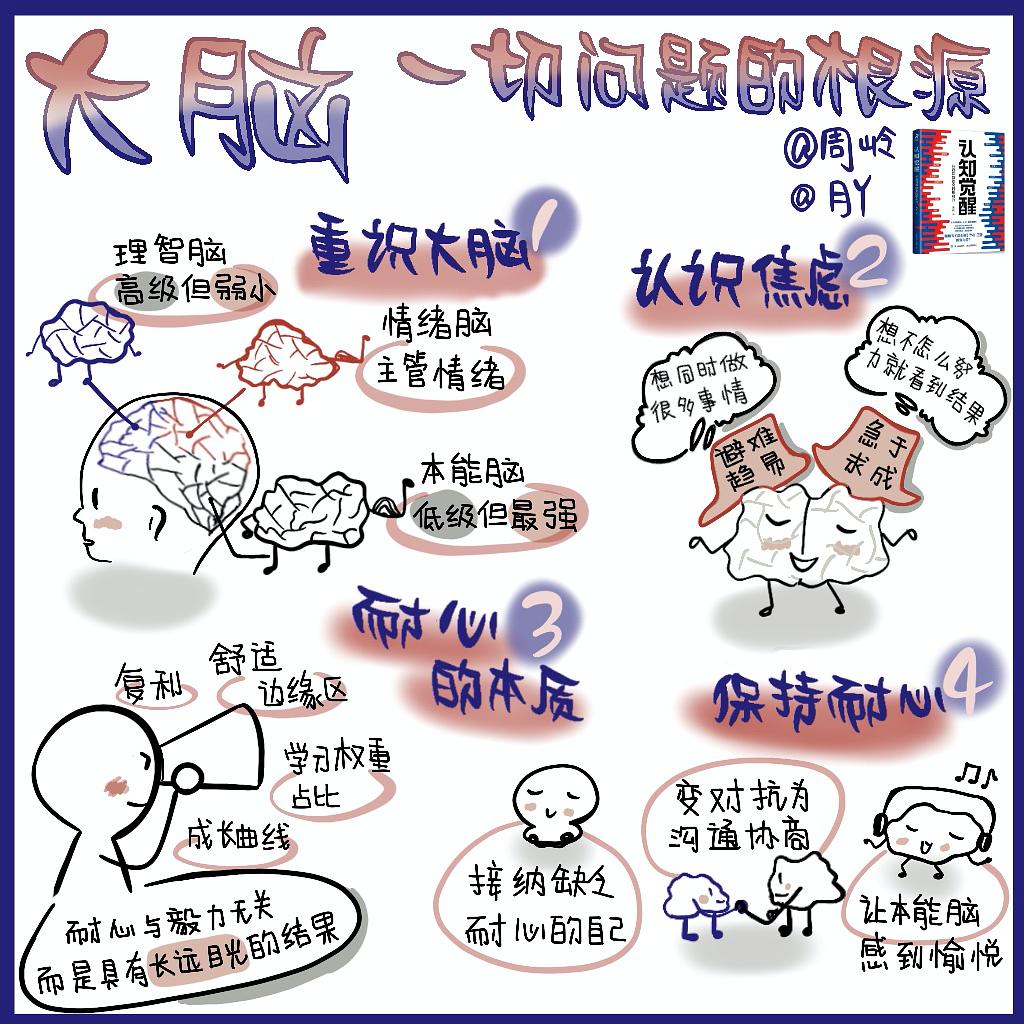 大脑 一切问题的根源
@周岭
@月丫
认知觉醒
重识大脑 1
理智脑
高级但弱小
情绪脑
主管情绪
本能脑
低级但最强
认识焦虑 2
想同时做
很多事情
想不怎么努
力就看到结果
避难
趋易
急于
求成
耐心 3
的本质
复利
舒适
边缘区
学习权重
占比
成长曲线
耐心与毅力无关
而是具有长远目光的结果
保持耐心 4
接纳缺乏
耐心的自己
变对抗为
沟通协商
让本能脑
感到愉悦